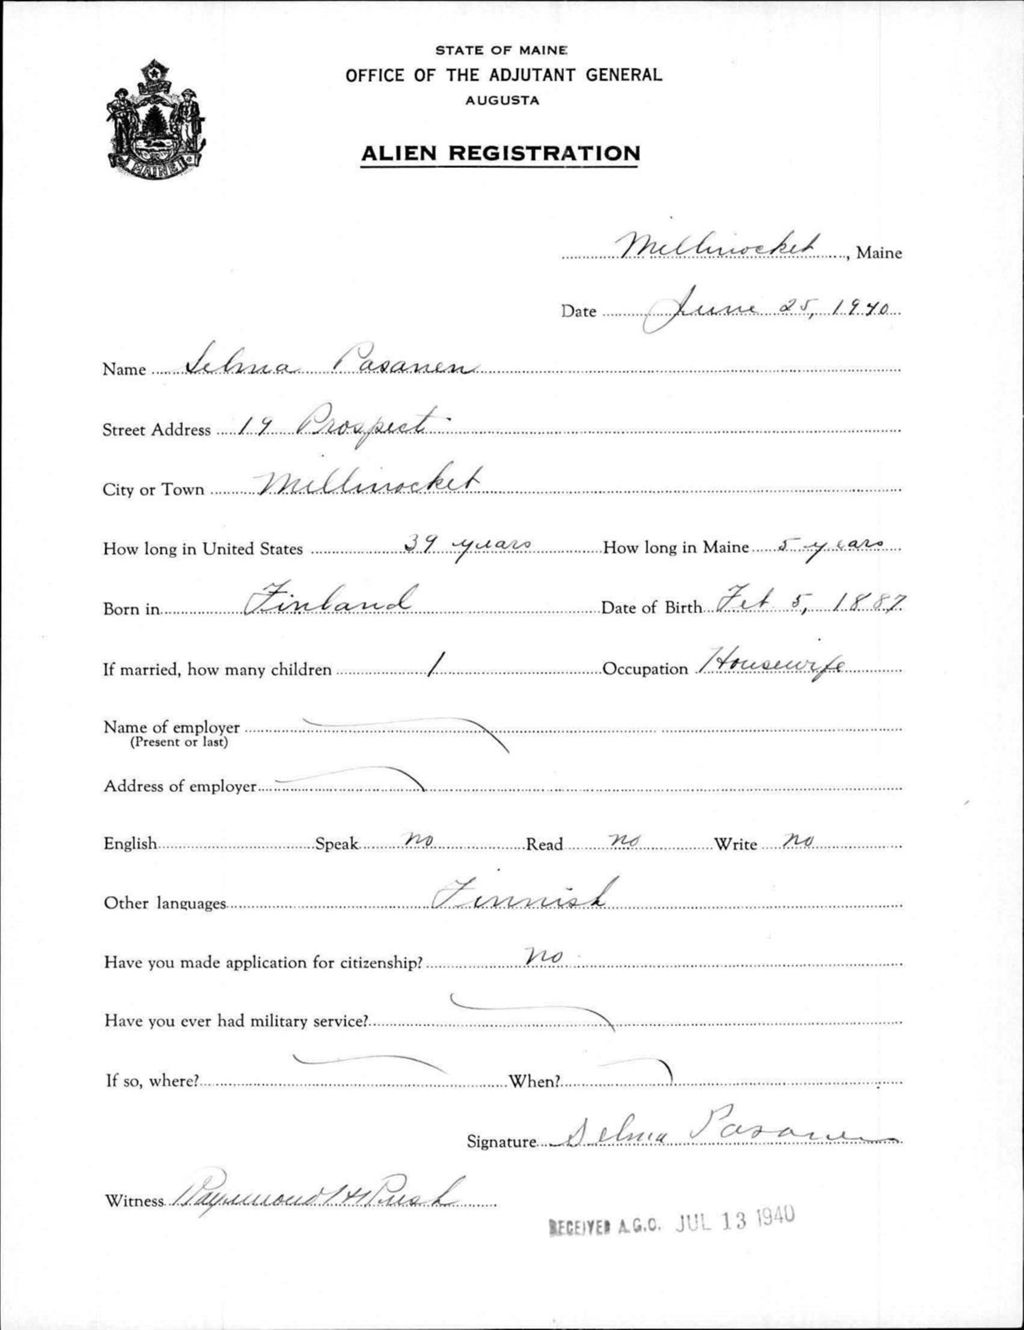 STATE OF MAINE
OFFICE OF THE ADJUTANT GENERAL
AUGUSTA
ALIEN REGISTRATION
MAINE
Millinocket, Maine
Date June 25, 1940
Name Selma Pasanen
Street Address 19 Prospect
City or Town Millinocket
How long in United States 39 years How long in Maine 5 years
Born in Finland Date of Birth Feb 5, 1887
If married, how many children 1 Occupation Housewife
Name of employer
(Present or last)
Address of employer
English Speak no Read no Write no
Other languages Finnish
Have you made application for citizenship? no
Have you ever had military service?
If so, where? When?
Signature Selma Pasanen
Witness Raymond H Rush
RECEIVED A.G.O. JUL 13 1940